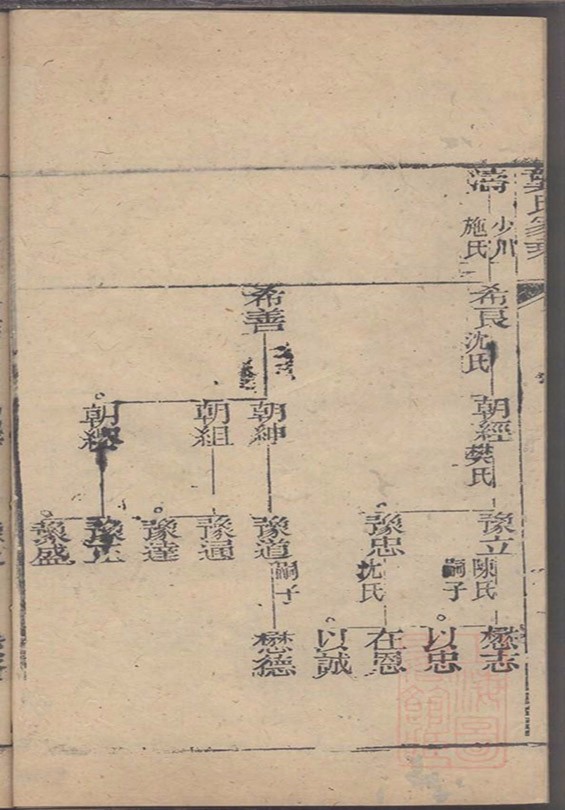 濤
少川
施氏
希良
沈氏
希善
朝經
樊氏
朝紳
朝組
豫立
陳氏
嗣子
豫忠
沈氏
豫道
嗣子
豫通
豫達
豫盛
懋志
以忠
在恩
以誠
懋德